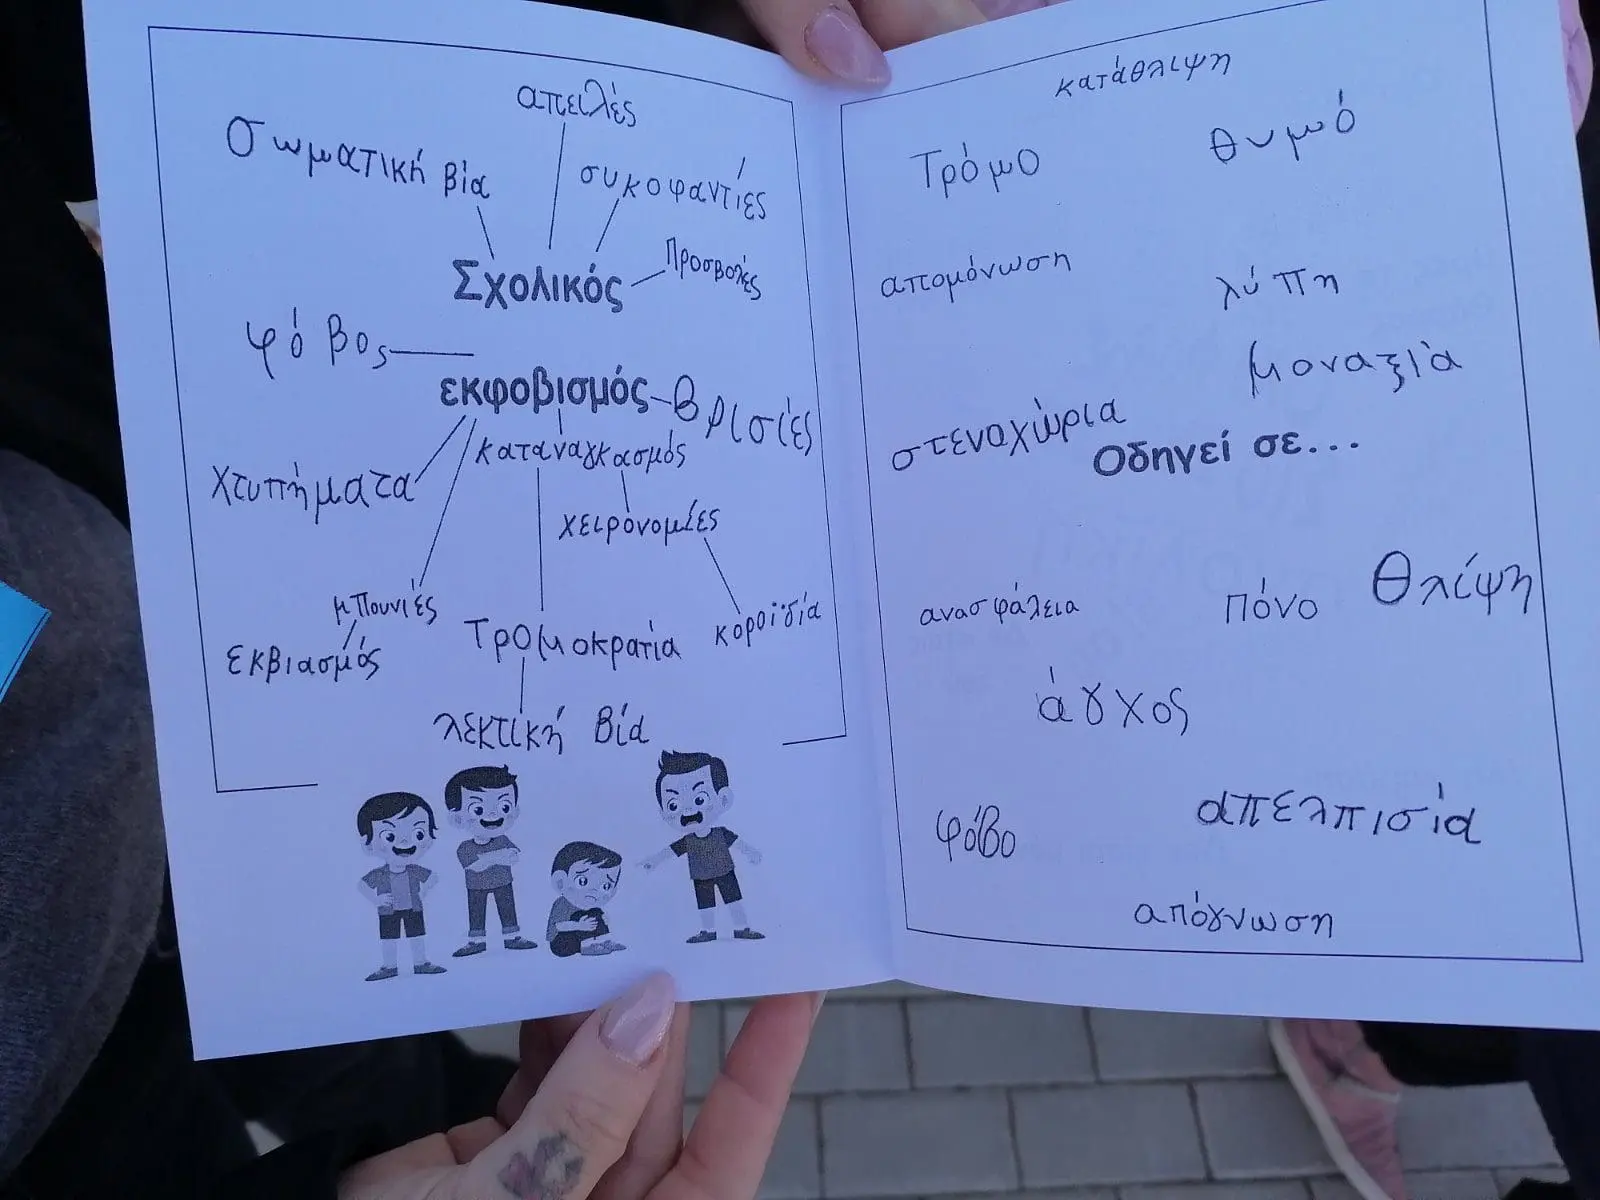 απειλές
Σωματική βία
συκοφαντίες
Σχολικός
Προσβολές
φόβος
εκφοβισμός
Βρισιές
καταναγκασμός
Χτυπήματα
χειρονομίες
μπουνιές
Τρομοκρατία
κοροϊδία
Εκβιασμός
λεκτική βία
κατάθλιψη
Τρόμο
θυμό
απομόνωση
λύπη
μοναξιά
στεναχώρια
Οδηγεί σε...
ανασφάλεια
πόνο
Θλίψη
άγχος
φόβο
απελπισία
απόγνωση